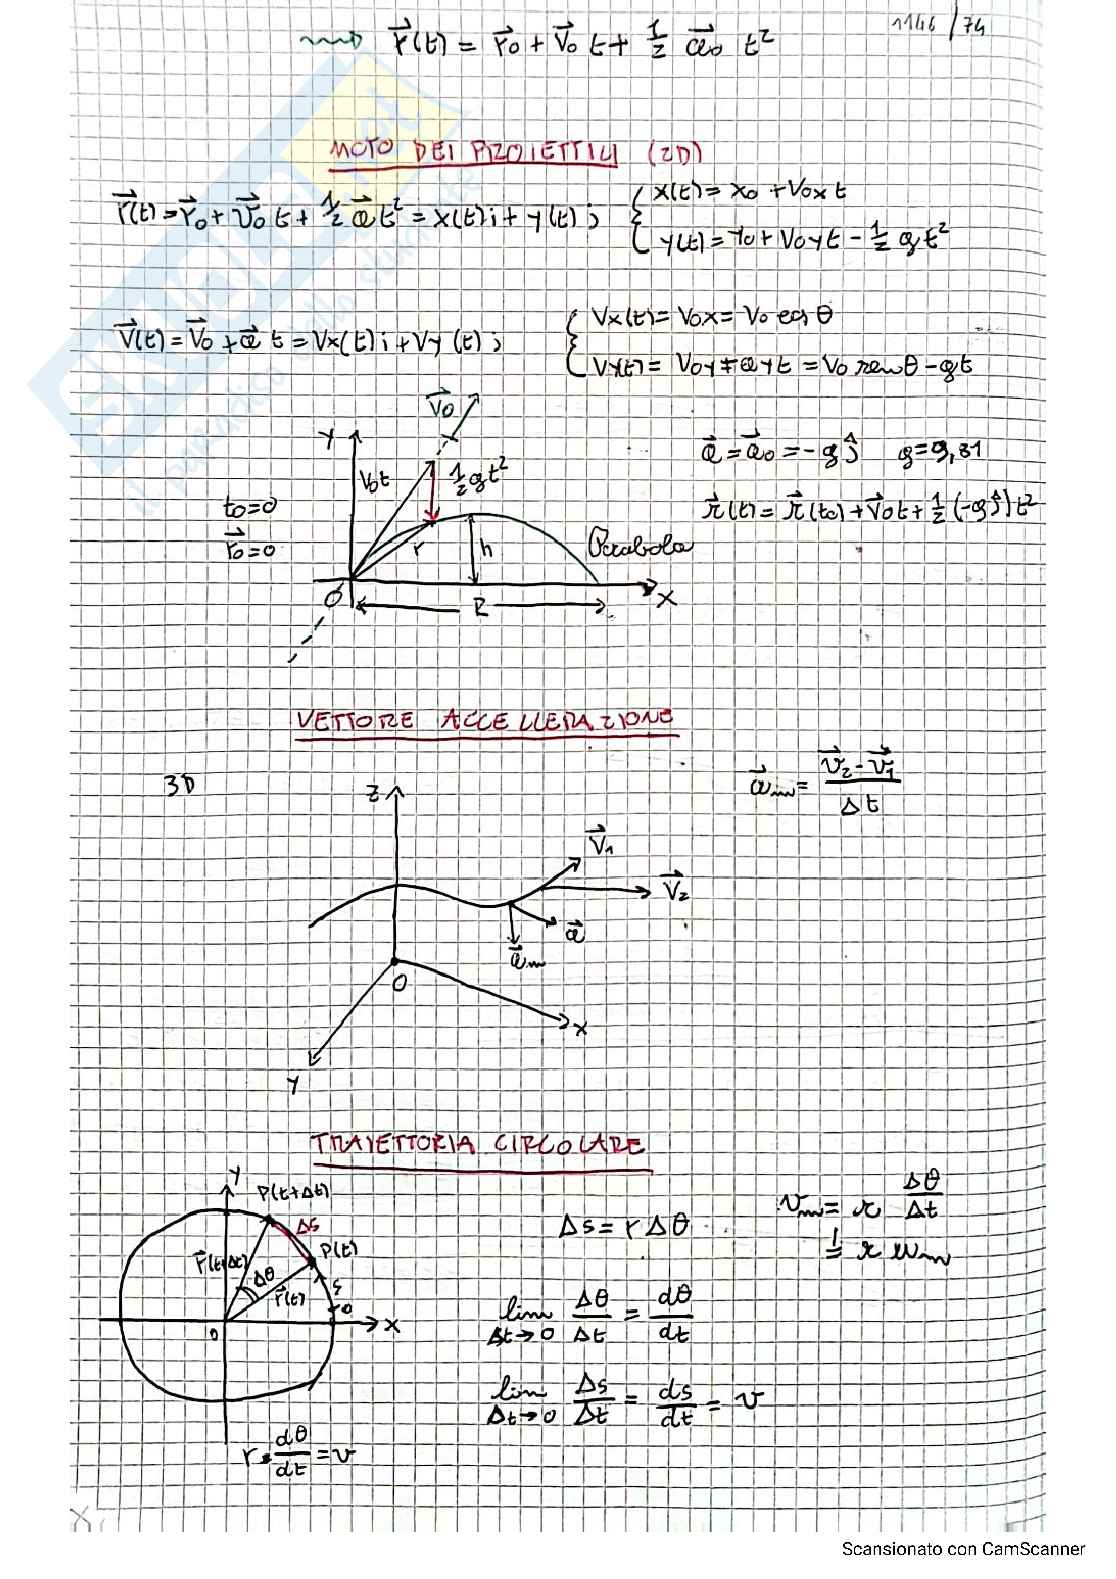 1146/74
r⃗(t) = r⃗0 + v⃗0 t + 1/2 a⃗0 t²
MOTO DEI PROIETTILI (2D)
r⃗(t) = r⃗0 + v⃗0 t + 1/2 a⃗ t² = x(t) i + y(t) j
{ x(t) = x0 + v0x t
y(t) = y0 + v0y t - 1/2 g t²
v⃗(t) = v⃗0 + a⃗ t = Vx(t) i + Vy(t) j
{ Vx(t) = V0x = V0 cos θ
Vy(t) = V0y + ay t = V0 sen θ - gt
V⃗0
Y
V0t
1/2 gt²
t0=0
r⃗0=0
r
h
Parabola
O
R
X
a⃗ = a⃗0 = -g ĵ g=9,81
r⃗(t) = r⃗(t0) + v⃗0 t + 1/2 (-g ĵ) t²
VETTORE ACCELLERAZIONE
3D
a⃗m = (v⃗2 - v⃗1) / Δt
Z
V⃗1
V⃗2
a⃗
a⃗m
O
X
Y
TRAIETTORIA CIRCOLARE
Y
P(t+Δt)
Δs
P(t)
r⃗(t+Δt)
Δθ
r⃗(t)
s
O
X
Δs = r Δθ
vm = r Δθ/Δt
= r ωm
lim Δt→0 Δθ/Δt = dθ/dt
lim Δt→0 Δs/Δt = ds/dt = v
r · dθ/dt = v
Scansionato con CamScanner